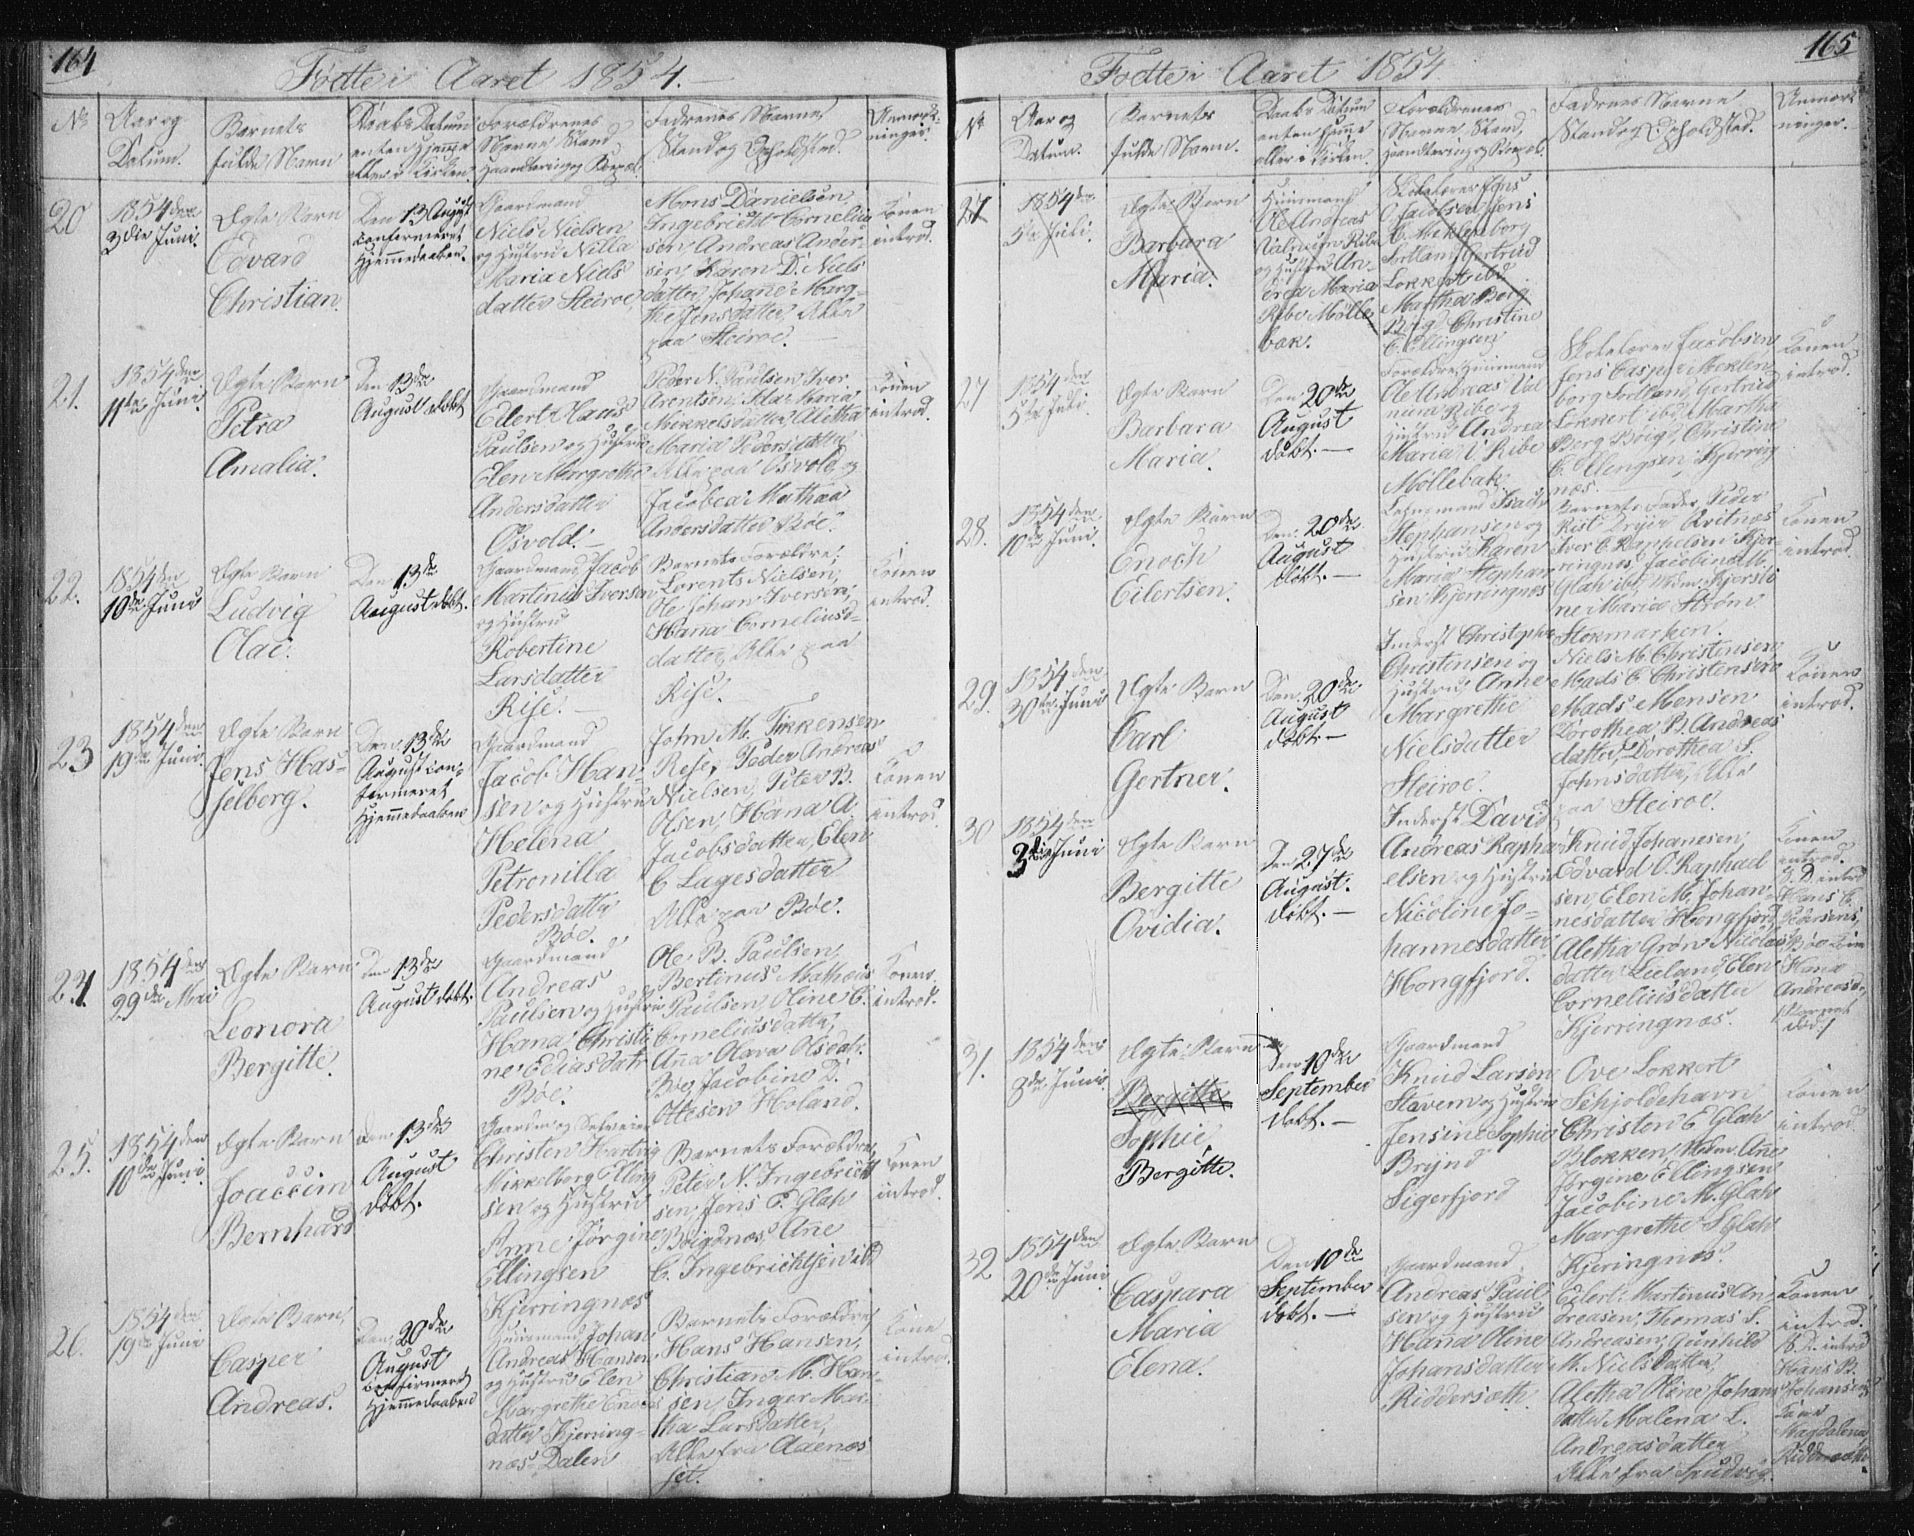 164
Fødte i Aaret 1854.
No
Aar og
Datum.
Barnets
fulde Navn
Daabs Datum
enten hjemme
eller i Kirken
Forældrenes
Navne Stand
Haandtering og Bopæl.
Fadrenes Navne,
Stand og Opholdsted.
Anmærk-
ninger.
20
1854 den
3die Juni.
Ægte Barn
Edvard
Christian.
Den 13 August
confermeret
Hjemmedaaben.
Gaardmand
Niels Nielsen
og Hustru Nilla
Maria Niels
datter Steiroe
Mons Danielsen,
Ingebricht Cornelius
sen, Andreas Ander-
sen, Karen D. Niels
datter, Johanne Marg-
the Jensdatter Alle
paa Steiroe.
Konen
introd.
21.
1854 den
11te Juni.
Ægte Barn
Petra
Amalia.
Den 13de
August døbt
Gaardmand
Eilert Hans
Paulsen og Hustru
Elen Margrethe
Andersdatter
Osvold.
Peder N. Paulsen, Iver
Arentsen, Ida Maria
Mikkelsdatter, Aletha
Maria Pedersdatter
Alle paa Osvold, og
Jacobea Mathea
Andersdatter Bøe.
Konen
introd.
22.
1854 den
10de Juni
Ægte Barn
Ludvig
Olai.
Den 13de
August døbt.
Gaardmand Jacob
Martinus Iversen
og Hustru
Robertine
Larsdatter
Rise.
Barnets Forældre,
Lorents Nielsen,
Ole Johan Iversen,
Hanna Cornelius-
datter, Alle paa
Rise.
Konen
introd.
23
1854 den
19de Juni.
Ægte Barn
Jens Has-
selberg.
Den 13de
August con-
fermeret
Hjemmedaaben
Gaardmand
Jacob Han-
sen og Hustru
Helena
Petronilla
Pedersdatter
Bøe.
John M. Tøkkensen
Rise, Peder Andreas
Nielsen, Peter B.
Olsen, Hana A.
Jacobsdatter, Elen
C Lagesdatter
Alle paa Bøe.
Konen
introd.
24.
1854 den
29de Mai
Ægte Barn
Leonora
Bergitte.
Den 13de
August døbt.
Gaardmand
Andreas
Paulsen og Hustru
Hana Christi
ne Ediasdatr
Bøe.
Ole B. Paulsen,
Bertinus Mathias
Paulsen, Oline C.
Corneliusdatter,
Anna Olava Olsdatr.
Bøe, Jacobine D.
Ottesen Holand.
Konen
introd.
25.
1854 den
10de Juni.
Ægte Barn
Joachim
Bernhard
Den 13de
August
døbt.
Gaardm og Selveier
Christen Hartvig
Mikkelborg Elling
sen og Hustru
Anne Jørgine
Ellingsen
Kjerringnæs
Barnets Forældre,
Peter N. Ingebricht
sen, Jens P. Glah
Boignæs, Ane
C. Ingebrichtsen ibd
Konen
introd.
26.
1854 den
19de Juni
Ægte Barn,
Casper
Andreas.
Den 20de
August
confirmeret
Hjemmedaaben
Huusmand Johan
Andreas Hansen
og Hustru Elen
Margrethe Enocs
datter Kjerring-
næs Dalen
Barnets Forældre,
Hans Hansen,
Christian M. Han-
sen, Inger Mar-
tha Larsdatter,
Alle fra Aaenæs
set.
Kone
introd.
165
Fødte i Aaret 1854
No
Aar og
Datum.
Barnets
fulde Navn.
Daabs Datum
enten hjemme
eller i Kirken.
Forældrenes
Navne, Stand,
Haandtering og Bopæl.
Fadrenes Navne
Stand og Opholdsted.
Anmærk
ninger.
27
1854 den
5te Juli.
Ægte Barn
Barbara
Maria.
Huusmand
Ole Andreas
Valnum Ribe
og Hustru An-
drea Maria
Ribe Mølle
bak.
C. Jacobsen, Jens
C. Meklenborg
Sortland, Gertrud
Lokkert ibd
Martha Borg
Bøig, Christine
C. Ellingsen
27
1854 den
5te Juli.
Ægte Barn
Barbara
Maria.
Den 20de
August
døbt.
Forældre, Huusmand
Ole Andreas Val
num Ribe og
Hustru Andrea
Maria C Ribe
Møllebak
Skolelærer Jacobsen
Jens Caspr Meklen-
borg Sortland, Gertrud
Lokkert ibd, Martha
Borg Bøigt, Christine
C. Ellengsen Kjerring
næs.
Konen
introd.
28.
1854 den
10de Juni.
Ægte Barn
Enoch
Eilertsen.
Den 20de
August
døbt.
Lehnsmand Isach
Stephansen og
Hustru Karen
Maria Stephan
sen Kjerringnæs
Barnets Fader, Peder
Rist Dreyer Kvitnæs
Iver C. Raphelsen Kjer-
ringnæs, Jacobina M.
Glah ibd, Mdm. Kjersti
ne Maria Strøm
Stokmarken.
Konen
introd.
29.
1854 den
30te Juni
Ægte Barn
Carl
Gertner.
Den 20de
August
døbt
Inderst Christopher
Christensen og
Hustru Anne
Margrethe
Nielsdatter
Steiroe.
Niels M. Christensen
Mads C Christensen
Mads Monsen
Dorothea B. Andreas
datter, Dorothea S.
Johnsdatter, Alle
paa Steiroe.
Konen
introd.
30
1854 den
3die Juni
Ægte Barn
Bergitte
Ovidia.
Den 27de
August.
døbt.
Inderst David
Andreas Rapha
elsen og Hustru
Nicoline Jo-
hannesdatter
Hongfjord.
Knud Johanesen,
Edvard O. Raphael
sen, Elen M. Johan-
nesdatter Hongfjord,
Aletha Grøn Nicolais
datter Lieland, Elen
Corneliusdatter
Kjerringnæs.
Konen
introd.
S. D. introd
Hans C.
Pedersens,
Bøe Kone
Hana
Andreasd.,
/: Barnet
død /
31.
1854 den
8de Juni.
Ægte Barn
Bergitte
Sophie,
Bergitte.
Den 10de
September
døbt.
Gaardmand
Knud Larsen
Stavem og Hustru
Jensine Sophie
Brynd
Sigerfjord
Ove Lokkert
Schjoldehavn
Christen E Glah
Blokken, Mdm. Ane
Jørgine Ellingsen
Jacobine M. Glah
Margrethe S Glah
Kjeringnæs.
Konen
introd.
32
1854 den
20de Juni
Ægte Barn
Caspara
Maria
Elena.
Den 10de
September
døbt.
Gaardmand
Andreas Paul
sen og Hustru
Hanna Oline
Johansdatter
Riddersæth.
Edert Martinus An-
dreasen, Thomas S.
Andreasen, Gunhild
M. Nielsdatter,
Aletha Oline Johans
datter Malena L.
Andreasdatter
Alle fra
Konen
introd.
S. D. introd
Hans B.
Johansens
Kone
Magdalena
Riddersæth.